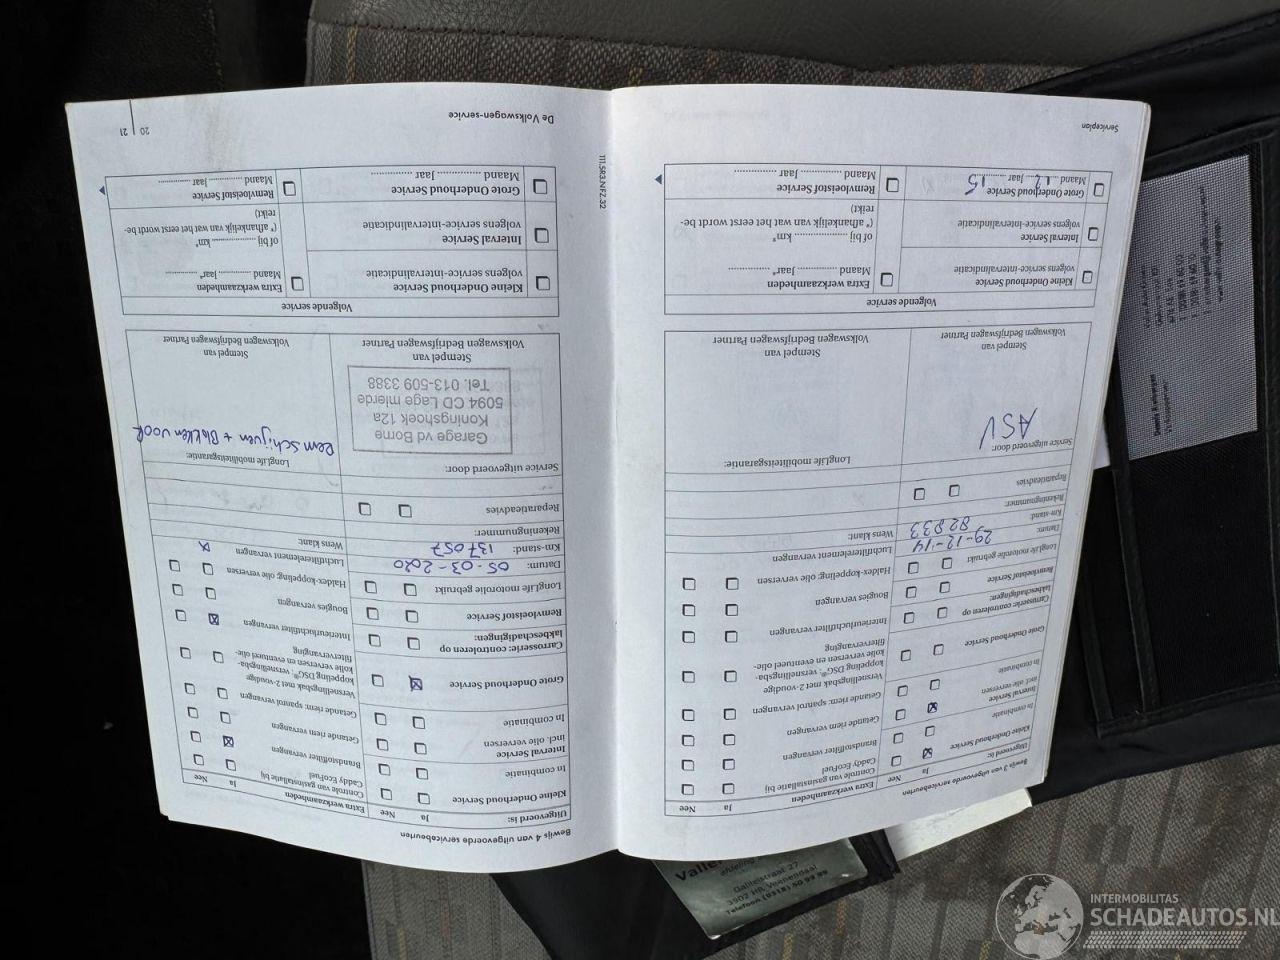 Serviceplan
Bewijs 3 van uitgevoerde servicebeurten
Uitgevoerd is: Ja Nee
Kleine Onderhoud Service
In combinatie
Interval Service
incl. olie versen
In combinatie
Grote Onderhoud Service
Carrosserie: controleren op
lakbeschadigingen:
Remvloeistof Service
LongLife motorolie gebruikt
Datum: 29-12-'14
Km-stand: 82833
Rekeningnummer:
Reparatieadvies
Service uitgevoerd door:
ASV
Stempel van
Volkswagen Bedrijfswagen Partner
Extra werkzaamheden Ja Nee
Controle van gasinstallatie bij
Caddy EcoFuel
Brandstoffilter vervangen
Getande riem vervangen
Getande riem: spanrol vervangen
Versnellingsbak met 2-voudige
koppeling DSG®; versnellingsba-
kolie verversen en eventueel olie-
filtervervanging
Interieurluchtfilter vervangen
Bougies vervangen
Haldex-koppeling: olie verversen
Luchtfilterelement vervangen
Wens klant:
LongLife mobiliteitsgarantie:
Stempel van
Volkswagen Bedrijfswagen Partner
Volgende service
Kleine Onderhoud Service
volgens service-intervalindicatie
Interval Service
volgens service-intervalindicatie
Grote Onderhoud Service
Maand 12 Jaar 15
Extra werkzaamheden
Maand ............ Jaar* ............
of bij .................. km*
(* afhankelijk van wat het eerst wordt be-
reikt)
Remvloeistof Service
Maand ............ Jaar ............
111.5R3.NFZ.32
Bewijs 4 van uitgevoerde servicebeurten
Uitgevoerd is: Ja Nee
Kleine Onderhoud Service
In combinatie
Interval Service
incl. olie verversen
In combinatie
Grote Onderhoud Service
Carrosserie: controleren op
lakbeschadigingen:
Remvloeistof Service
LongLife motorolie gebruikt
Datum: 05-03-2020
Km-stand: 137057
Rekeningnummer:
Reparatieadvies
Service uitgevoerd door:
Garage vd Borne
Koningshoek 12a
5094 CD Lage mierde
Tel. 013-509 3388
Stempel van
Volkswagen Bedrijfswagen Partner
Extra werkzaamheden Ja Nee
Controle van gasinstallatie bij
Caddy EcoFuel
Brandstoffilter vervangen
Getande riem vervangen
Getande riem: spanrol vervangen
Versnellingsbak met 2-voudige
koppeling DSG®; versnellingsba-
kolie verversen en eventueel olie-
filtervervanging
Interieurluchtfilter vervangen
Bougies vervangen
Haldex-koppeling: olie verversen
Luchtfilterelement vervangen x
Wens klant:
LongLife mobiliteitsgarantie:
Remschijven + Blokken voor
Stempel van
Volkswagen Bedrijfswagen Partner
Volgende service
Kleine Onderhoud Service
volgens service-intervalindicatie
Interval Service
volgens service-intervalindicatie
Grote Onderhoud Service
Maand ............ Jaar ............
Extra werkzaamheden
Maand ............ Jaar* ............
of bij .................. km*
(* afhankelijk van wat het eerst wordt be-
reikt)
Remvloeistof Service
Maand ............ Jaar ............
De Volkswagen-service
20 | 21
Galileistraat 27
3902 HR Veenendaal
Telefoon (0318) 50 99 89
INTERMOBILITAS
SCHADEAUTOS.NL